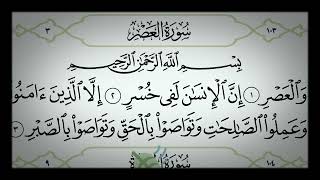 ٣ سُورَةُ الْعَصْرِ ١٠٣
بِسْمِ اللَّهِ الرَّحْمَٰنِ الرَّحِيمِ
وَالْعَصْرِ ١ إِنَّ الْإِنسَانَ لَفِي خُسْرٍ ٢ إِلَّا الَّذِينَ ءَامَنُوا
وَعَمِلُوا الصَّالِحَاتِ وَتَوَاصَوْا بِالْحَقِّ وَتَوَاصَوْا بِالصَّبْرِ ٣
٩ سُورَةُ ١٠٤